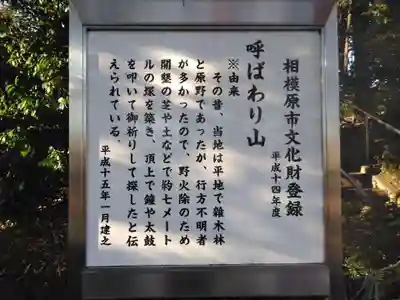 相模原市文化財登録
平成十四年度
呼ばわり山
※由来
その昔、当地は平地で雑木林
と原野であったが、行方不明者
が多かったので、野火除のため
開墾の芝や土などで約七メート
ルの塚を築き、頂上で鐘や太鼓
を叩いて御祈りして探したと伝
えられている。
平成十五年一月建之